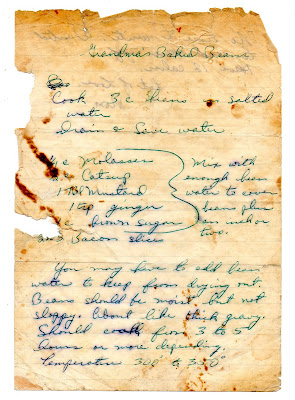 Grandma's Baked Beans
Cook 3 c beans in salted
water
Drain & Save water
c Molasses
c Catsup
1 Tbl Mustard
1 tsp ginger
c brown sugar
Bacon slices
Mix with
enough bean
water to cover
beans plus
an inch or
two.
You may have to add bean
water to keep from drying out.
Beans should be moist but not
sloppy. About like thick gravy.
Should cook from 3 to 5
hours or more depending.
Temperature 300° to 350°